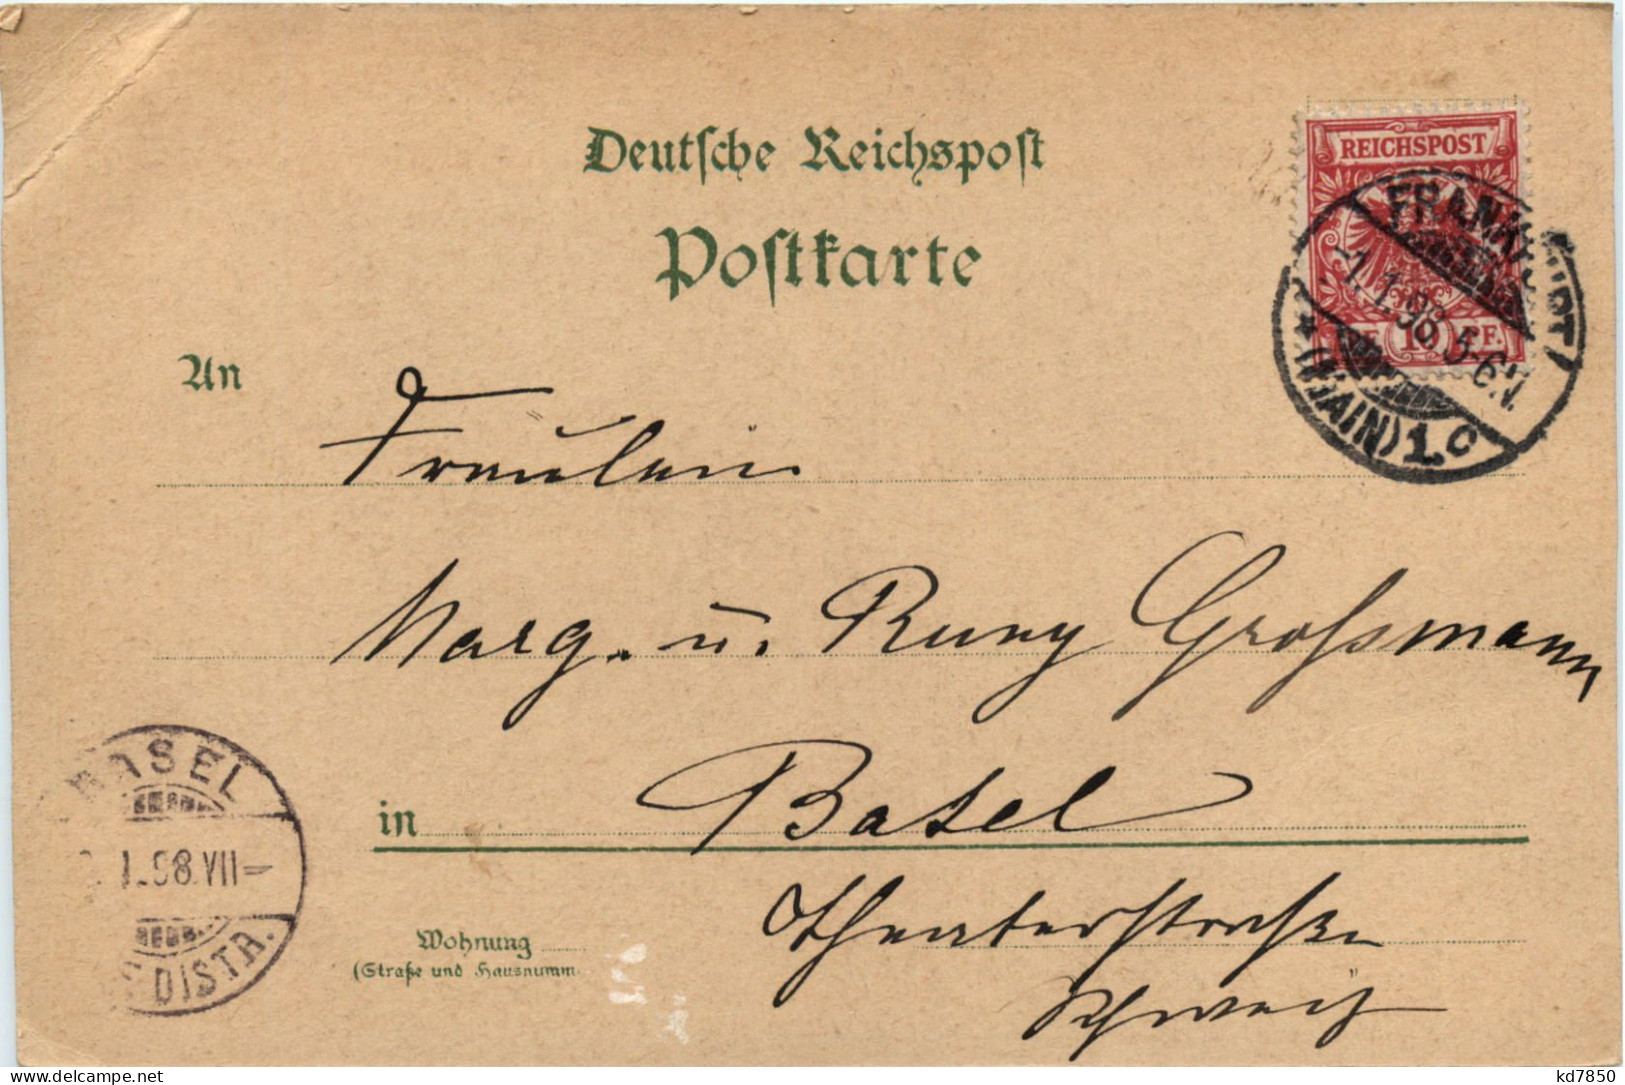 Deutsche Reichspost
Postkarte
REICHSPOST
10 PF.
FRANKFURT
1.1.98 5-6N.
* (MAIN) 1.c
An
Fräulein
Marg. u. Romy Grossmann
in Basel
Theaterstrasse
Schweiz
Wohnung
(Straße und Hausnumm
BASEL
1.98.VII-
DISTR.
delcampe.net
kd7850